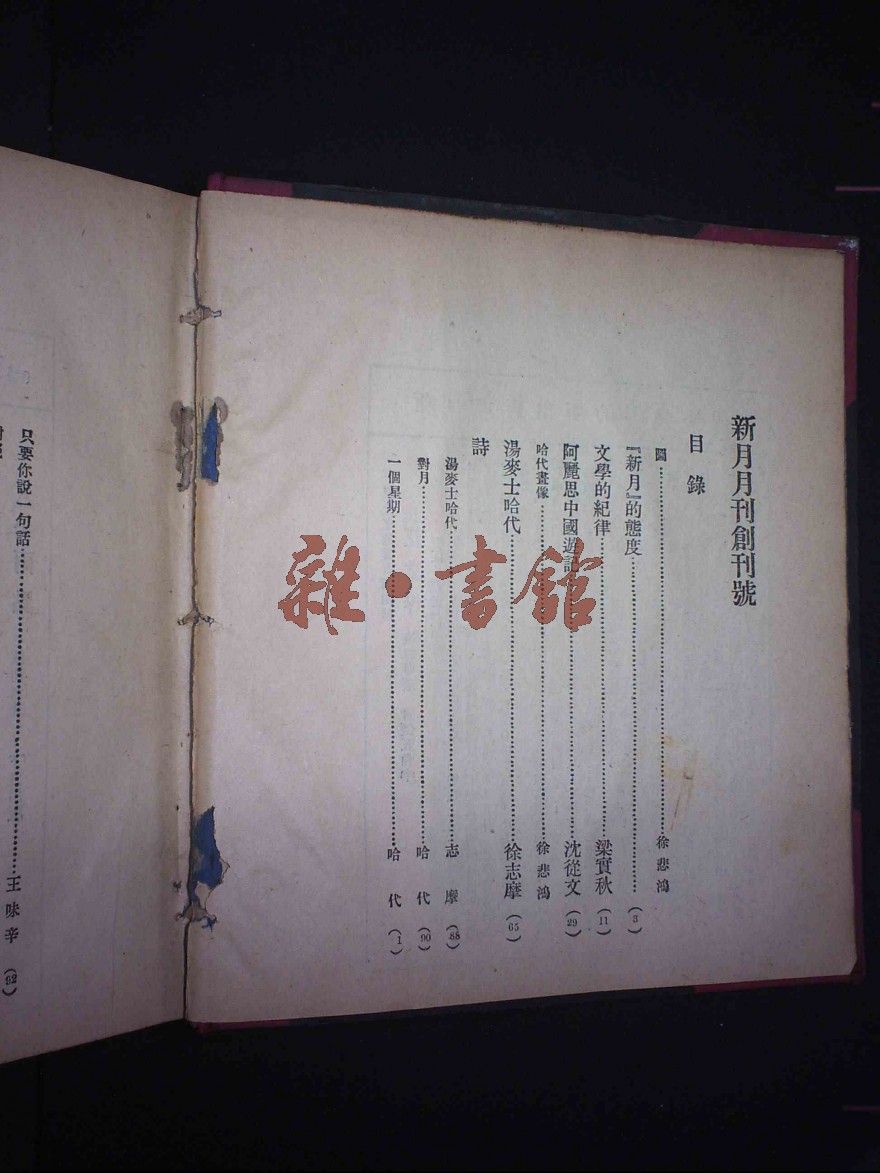 新月月刊創刊號
目錄
圖……徐悲鴻
『新月』的態度……(3)
文學的紀律……梁實秋(11)
阿麗思中國遊記……沈從文(29)
哈代畫像……徐悲鴻
湯麥士哈代……徐志摩(65)
詩
湯麥士哈代……志摩(88)
對月……哈代(90)
一個星期……哈代(1)
只要你說一句話……王味辛(92)
雜·書館